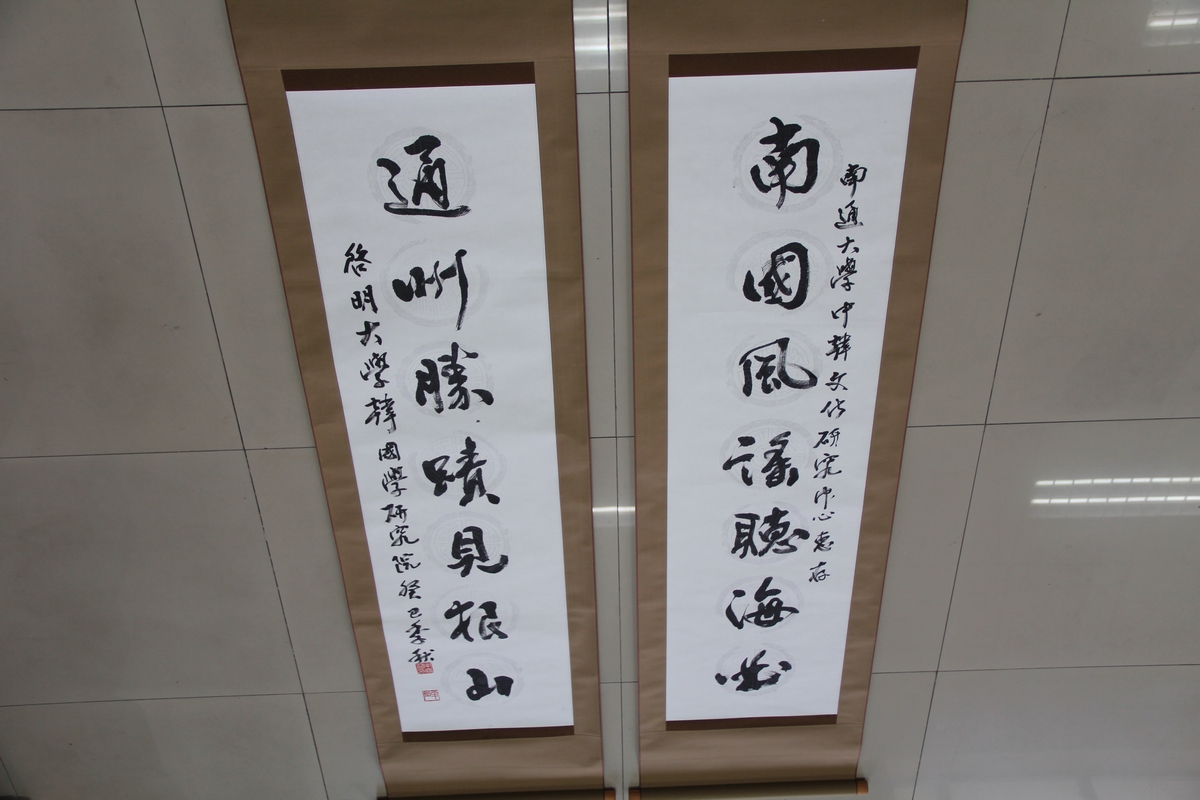 南通大學中韓文化研究中心惠存
南國風謠聽海
通州勝蹟見狼山
啓明大學韓國學研究院 癸巳季秋